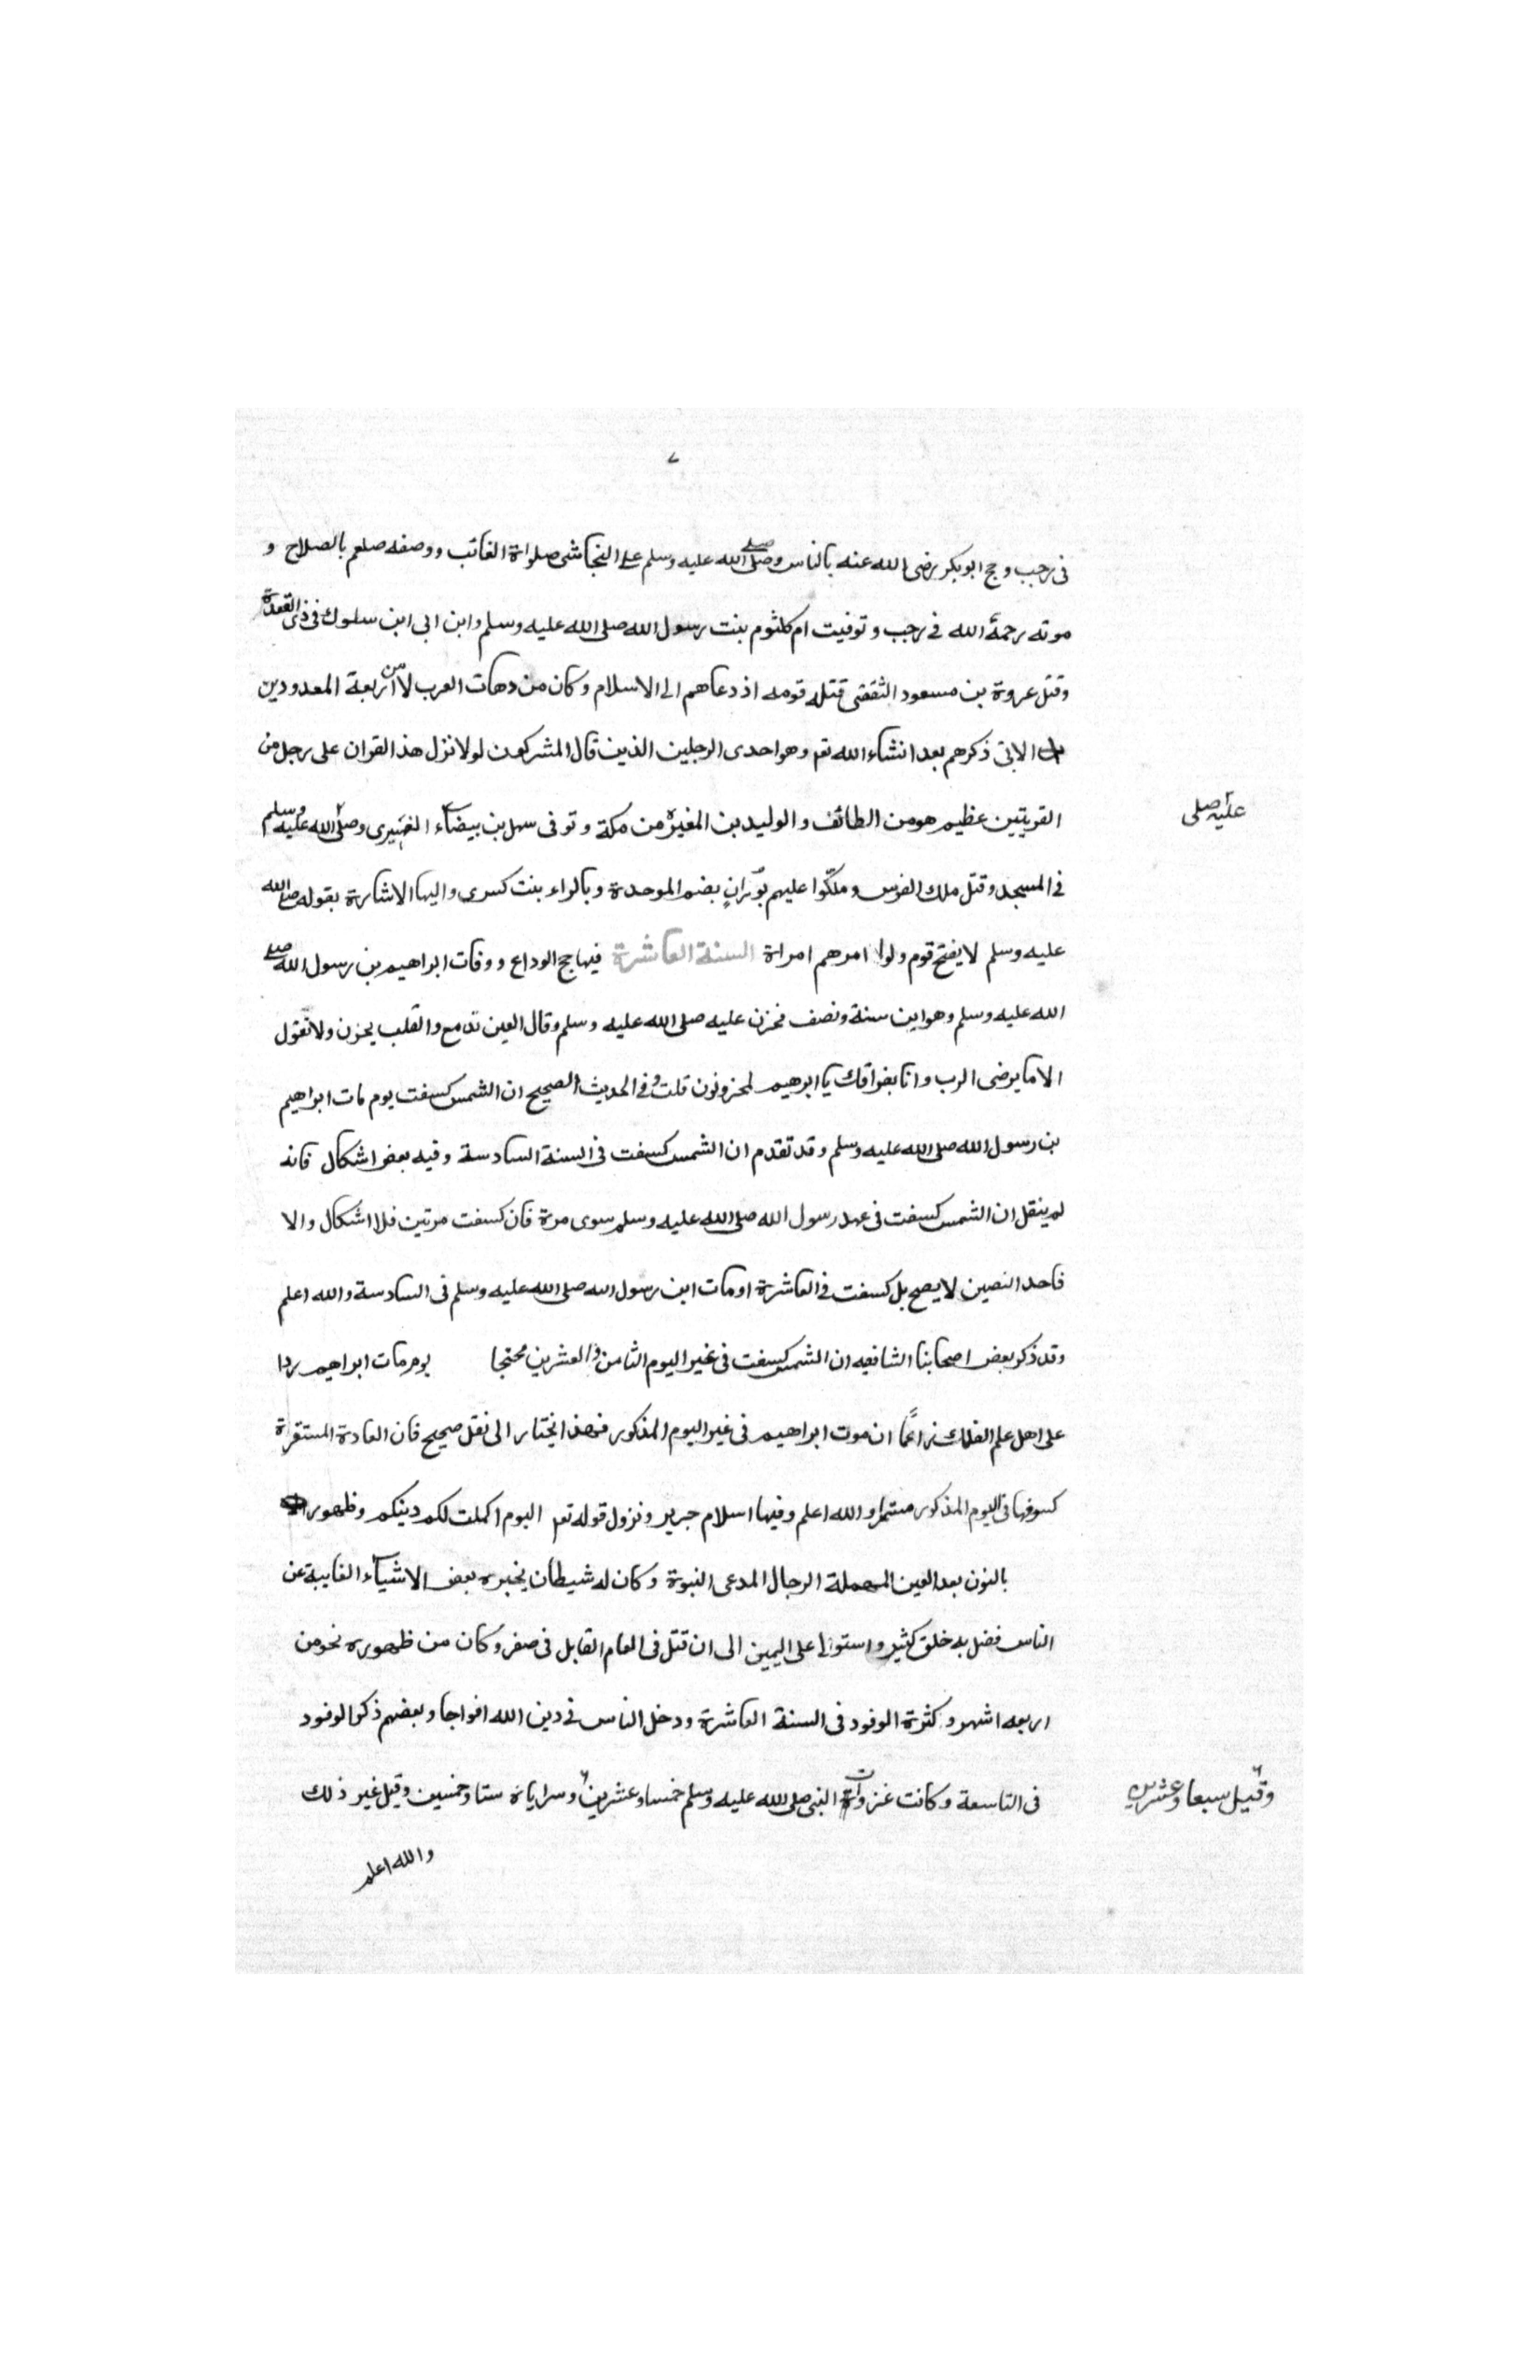 ٧
في رجب وحج ابو بكر رضى الله عنه بالناس وصلى صلى الله عليه وسلم على النجاشى صلواة الغائب ووصفه صلعم بالصلاح و
موته رحمة الله في رجب وتوفيت ام كلثوم بنت رسول الله صلى الله عليه وسلم وابن ابى ابن سلوك فى ذى القعدة
وقتل عروة بن مسعود الثقفى قتله قومه اذ دعاهم الى الاسلام وكان من دهات العرب من لاربعة المعدودين
الاتى ذكرهم بعد انشاء الله تع وهو احدى الرجلين الذين قال المشركون لولا نزل هذ القران على رجل من
القريتين عظيم هو من الطائف والوليد بن المغيرة من مكة وتوفى سهل بن بيضاء وصلى الله عليه وسلم
عليه صلى
في المسجد وقتل ملك الفرس وملكّوا عليهم بوران بضم الموحدة وبالراء بنت كسرى واليها الاشارة بقوله صلى الله
عليه وسلم لا يفتح قوم ولوا امرهم امراة السنة العاشرة فيها حج الوداع ووفات ابراهيم بن رسول الله صلى
الله عليه وسلم وهو ابن سنة ونصف فحزن عليه صلى الله عليه وسلم وقال العين تدمع والقلب يحزن ولا نقول
الا ما يرضى الرب وانا بفراقك يا ابرهيم لمحزونون قلت وفي الحديث الصحيح ان الشمس كسفت يوم مات ابراهيم
بن رسول الله صلى الله عليه وسلم وقد تقدم ان الشمس كسفت فى السنة السادسة وفيه بعض اشكال فانه
لم ينقل ان الشمس كسفت فى عهد رسول الله صلى الله عليه وسلم سوى مرة فان كسفت مرتين فلا اشكال والا
فاحد النصين لا يصح بل كسفت فى العاشرة او مات ابن رسول الله صلى الله عليه وسلم فى السادسة والله اعلم
وقد ذكر بعض اصحابنا الشافعيه ان الشمس كسفت فى غير اليوم الثامن والعشرين محتجا يوم مات ابراهيم ردا
على اهل علم الفلك زاعمًا ان موت ابراهيم فى غير اليوم المذكور فهذ ايحتار الى نقل صحيح فان العادة المستقراة
كسوفها فى اليوم المذكور مستمرا والله اعلم وفيها اسلام جرير ونزول قوله تع اليوم اكملت لكم دينكم وظهور
بالنون بعد العين المهملة الرجال المدعى النبوة وكان له شيطان يخبره بعض الاشياء الغايبة عن
الناس فضل به خلق كثير واستوالى على اليمين الى ان قتل فى العام القابل فى صفر وكان من ظهوره نحو من
اربعه اشهر وكثرة الوفود فى السنة العاشرة ودخل الناس فى دين الله افواجا وبعضهم ذكر الوفود
فى التاسعة وكانت غزوات النبى صلى الله عليه وسلم خمسا وعشرين وسراياه ستا وخمسين وقيل غير ذلك
وقيل سبعا وعشرين
والله اعلم